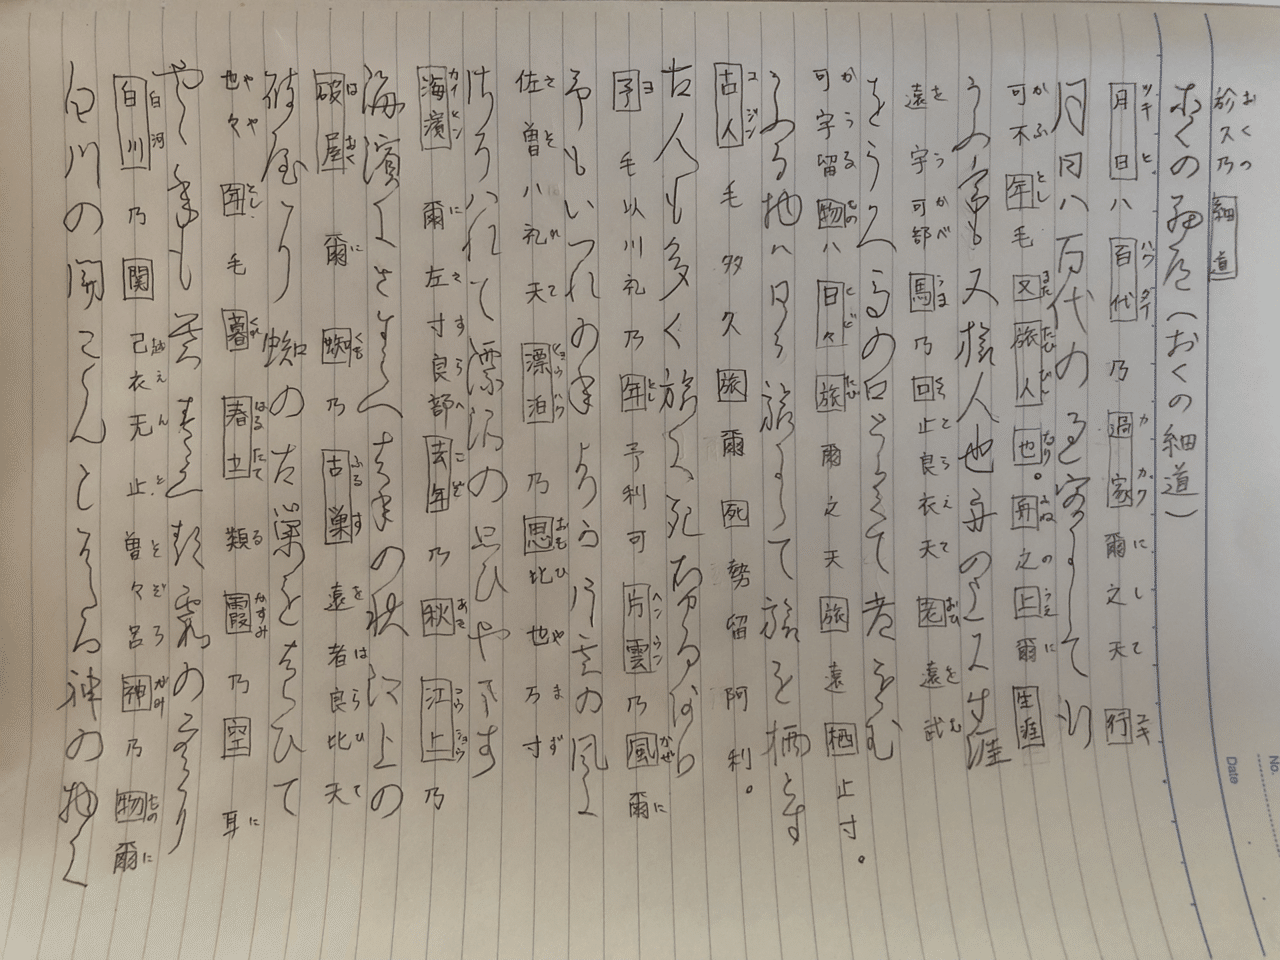 於久乃細道
おくの細道（おくの細道）
月日ハ百代乃過客爾之天行
月日ハ百代の過客にして行
可不年毛又旅人也。舟之上爾生涯
かふ年も又旅人也舟の上に生涯
遠宇可部馬乃口止良衣天老遠武
をうかへ馬の口とらえて老をむ
可宇留物ハ日々旅爾之天旅遠栖止寸。
かうる物ハ日々旅にして旅を栖とす
古人毛多久旅爾死勢留阿利。
古人も多く旅に死せるあり
予毛以川礼乃年予利可片雲乃風爾
予もいつれの年よりか片雲の風に
佐曽ハ礼天漂泊乃思比也万寸
さそハれて漂泊の思ひやます
海濱爾左寸良部去年乃秋江上乃
海濱にさすらへ去年の秋江上の
破屋爾蜘乃古巣遠者良比天
破屋に蜘の古巣をはらひて
也々年毛暮春立類霞乃空耳
やゝ年も暮春立る霞の空に
白川乃関己衣无止曽々呂神乃物爾
白川の関こえんとそゝろ神の物に
No.
Date